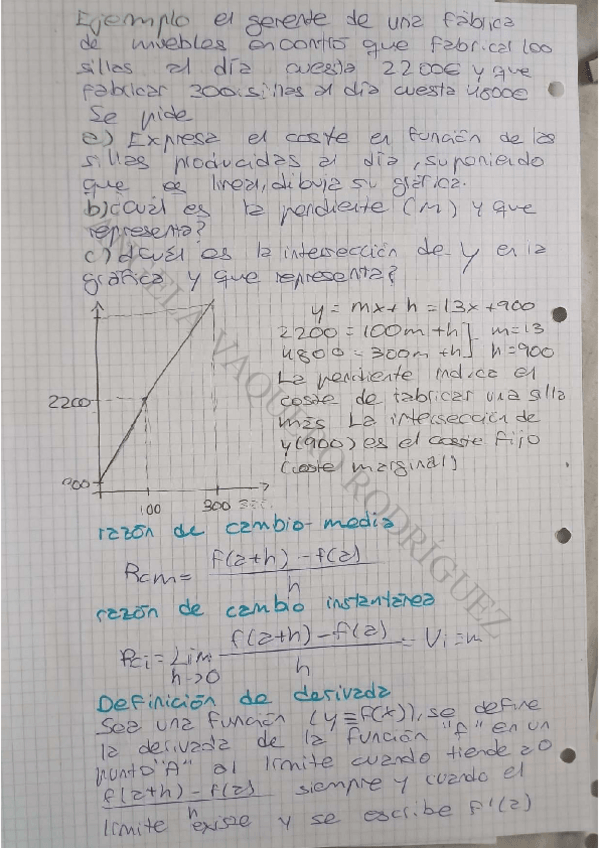 Ejemplo el gerente de una fábrica
de muebles encontró que fabricar 100
sillas al día cuesta 2200€ y que
fabricar 300 sillas al día cuesta 4800€
Se pide
a) Expresa el coste en función de las
sillas producidas al día, suponiendo
que es lineal, dibuja su gráfica.
b) cuál es la pendiente (m) y que
representa?
c) ¿cuál es la intersección de y en la
gráfica y que representa?
y = mx + h = 13x + 900
2200 = 100m + h] m = 13
4800 = 300m + h] h = 900
La pendiente indica el
coste de fabricar una silla
más La intersección de
y(900) es el coste fijo
(coste marginal)
2200
900
100 300
razón de cambio media
Rcm = f(a+h) - f(a) / h
razón de cambio instantánea
Rci = Lim h->0 f(a+h) - f(a) / h = Vi = m
Definición de derivada
Sea una función (y ≡ f(x)), se define
la derivada de la función "f" en un
punto "A" al límite cuando tiende a 0
f(a+h) - f(a) / h siempre y cuando el
límite existe y se escribe f'(a)
ANGELA VAQUERO RODRÍGUEZ